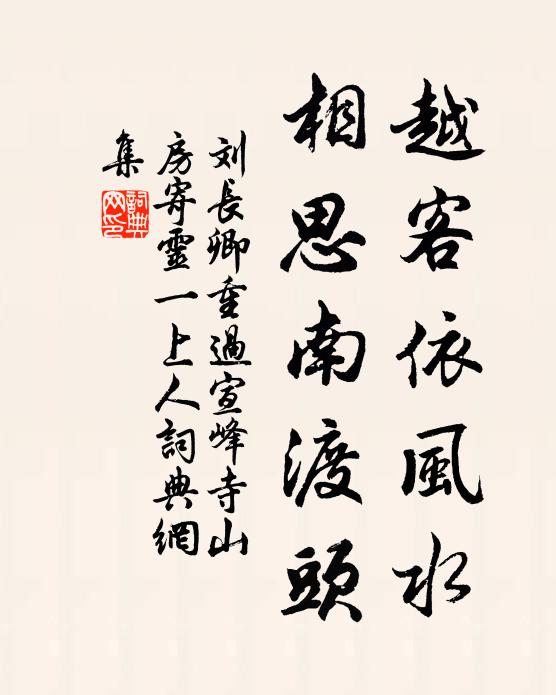 越客依風水
相思南渡頭
刘長卿重過宣峰寺山
房寄靈一上人詞典網
集
詞典
网印